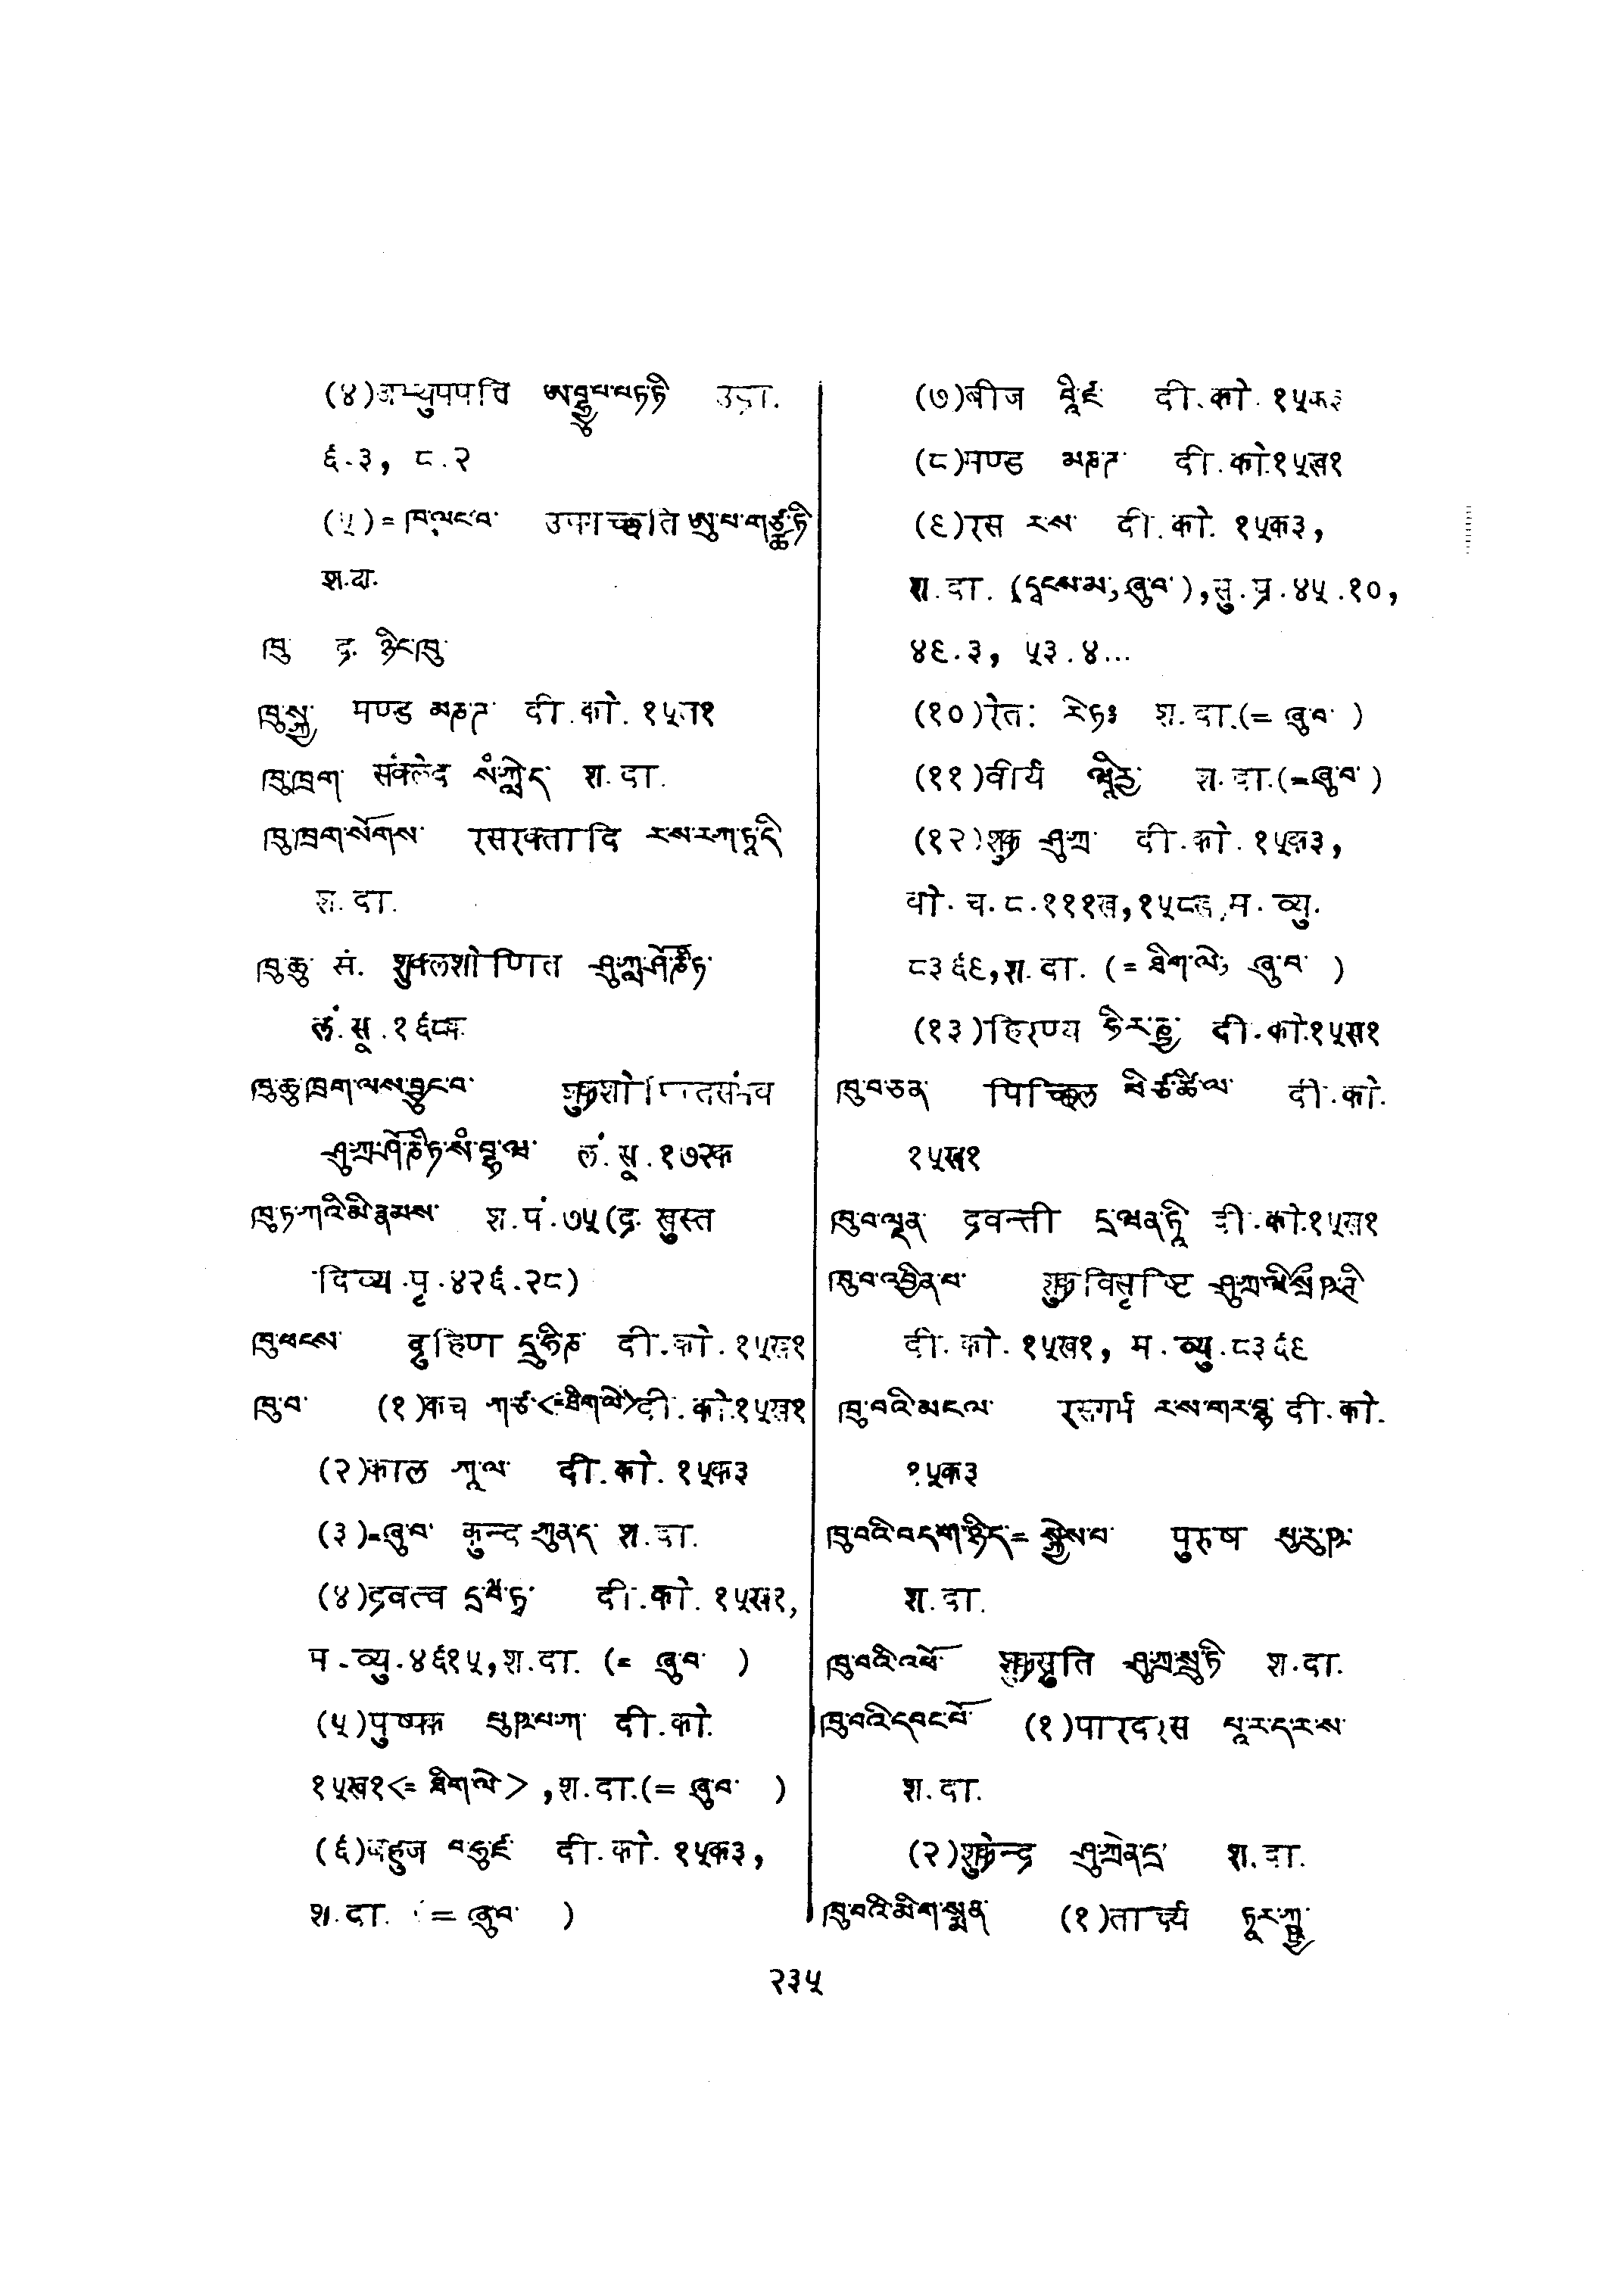 (४)अभ्युपपत्ति ཨ་བྷྱུ་པ་པཏྟི
६.३, ८.२
(५)= ཁ་ལང་བ་ उपगच्छति ཨུ་པ་གཙྪ་ཏི
श.दा.
ཁུ་ द्र. ཉིང་ཁུ་
ཁུ་སྐྱ་ मण्ड མཎྜ་ दी.को. १५ख१
ཁུ་ཁྲག་ संक्लेद སཾ་ཀླེ་ད་ श.दा.
ཁུ་ཁྲག་སོགས་ रसरक्तादि ར་ས་རཀྟཱ་དི
श.दा.
ཁུ་ཆུ་ सं. शुक्लशोणित ཤུ་ཀླ་ཤོ་ཎི་ཏ་
लं.सू.१६८ख
ཁུ་ཆུ་ཁྲག་ལས་བྱུང་བ་ शुक्रशोणितसंभव
ཤུ་ཀྲ་ཤོ་ཎི་ཏ་སཾ་བྷ་ཝ་ लं.सू.१७२क
ཁུ་ཏ་ཀའི་མི་རྣམས་ श.पं.७५(द्र. खुस्त
दिव्य.पृ.४२६.२८)
ཁུ་ཕངས་ द्रुहिण དྲུ་ཧི་ཎ दी.को.१५ख१
ཁུ་བ་ (१)कच ཀ་ཙ་<=ཐིག་ལེ>दी.को.१५ख१
(२)काल ཀཱ་ལ་ दी.को.१५क३
(३)=ཞུ་བ་ कुन्द ཀུན་ད་ श.दा.
(४)द्रवत्व དྲ་བོ་ཏྭ་ दी.को.१५ख१,
म.व्यु.४६१५,श.दा. (= ཞུ་བ་ )
(५)पुष्पक པུཥྤ་ཀ་ दी.को.
१५ख१<= ཐིག་ལེ>,श.दा.(= ཞུ་བ་ )
(६)बहुज བ་ཧུ་ཛ་ दी.को.१५क३,
श.दा. (= ཞུ་བ་ )
(७)बीज བཱི་ཛ་ दी.को.१५क३
(८)मण्ड མཎྜ་ दी.को.१५ख१
(९)रस ར་ས་ दी.को. १५क३,
श.दा. (དྭངས་མ, ཞུ་བ་),सु.प्र.४५.१०,
४९.३, ५३.४...
(१०)रेतः རེ་ཏཿ श.दा.(= ཞུ་བ་ )
(११)वीर्य ཝཱིརྱ་ श.दा.(=ཞུ་བ་ )
(१२)शुक्र ཤུ་ཀྲ་ दी.को.१५क३,
बो.च.८.१११ख,१५८ख,म.व्यु.
८३६९,श.दा. (= ཐིག་ལེ, ཞུ་བ་ )
(१३)हिरण्य ཧི་ར་ཎྱ་ दी.को.१५ख१
ཁུ་བ་ཅན་ पिच्छिल པི་ཙྪི་ལ་ दी.को.
१५ख१
ཁུ་བ་ལྡན་ द्रवन्ती དྲ་ཝན་ཏཱི दी.को.१५ख१
ཁུ་བ་འབྱིན་པ་ शुक्रविसृष्टि ཤུ་ཀྲ་ཝི་སྲྀཥྚི
दी.को.१५ख१, म.व्यु.८३६९
ཁུ་བའི་མངལ་ रसगर्भ ར་ས་གརྦྷ་ दी.को.
१५क३
ཁུ་བའི་བདག་ཉིད་= སྐྱེས་བ་ पुरुष པུ་རུ་ཥ་
श.दा.
ཁུ་བའི་འཕོ་ शुक्रस्रुति ཤུ་ཀྲ་སྲུ་ཏི श.दा.
ཁུ་བའི་དབང་པོ་ (१)पारदरस པཱ་ར་ད་ར་ས་
श.दा.
(२)शुक्रेन्द्र ཤུ་ཀྲེན་དྲ་ श.दा.
ཁུ་བའི་མིག་སྨན་ (१)तार्क्ष्य ཏཱརྐྵྱ་
२३५